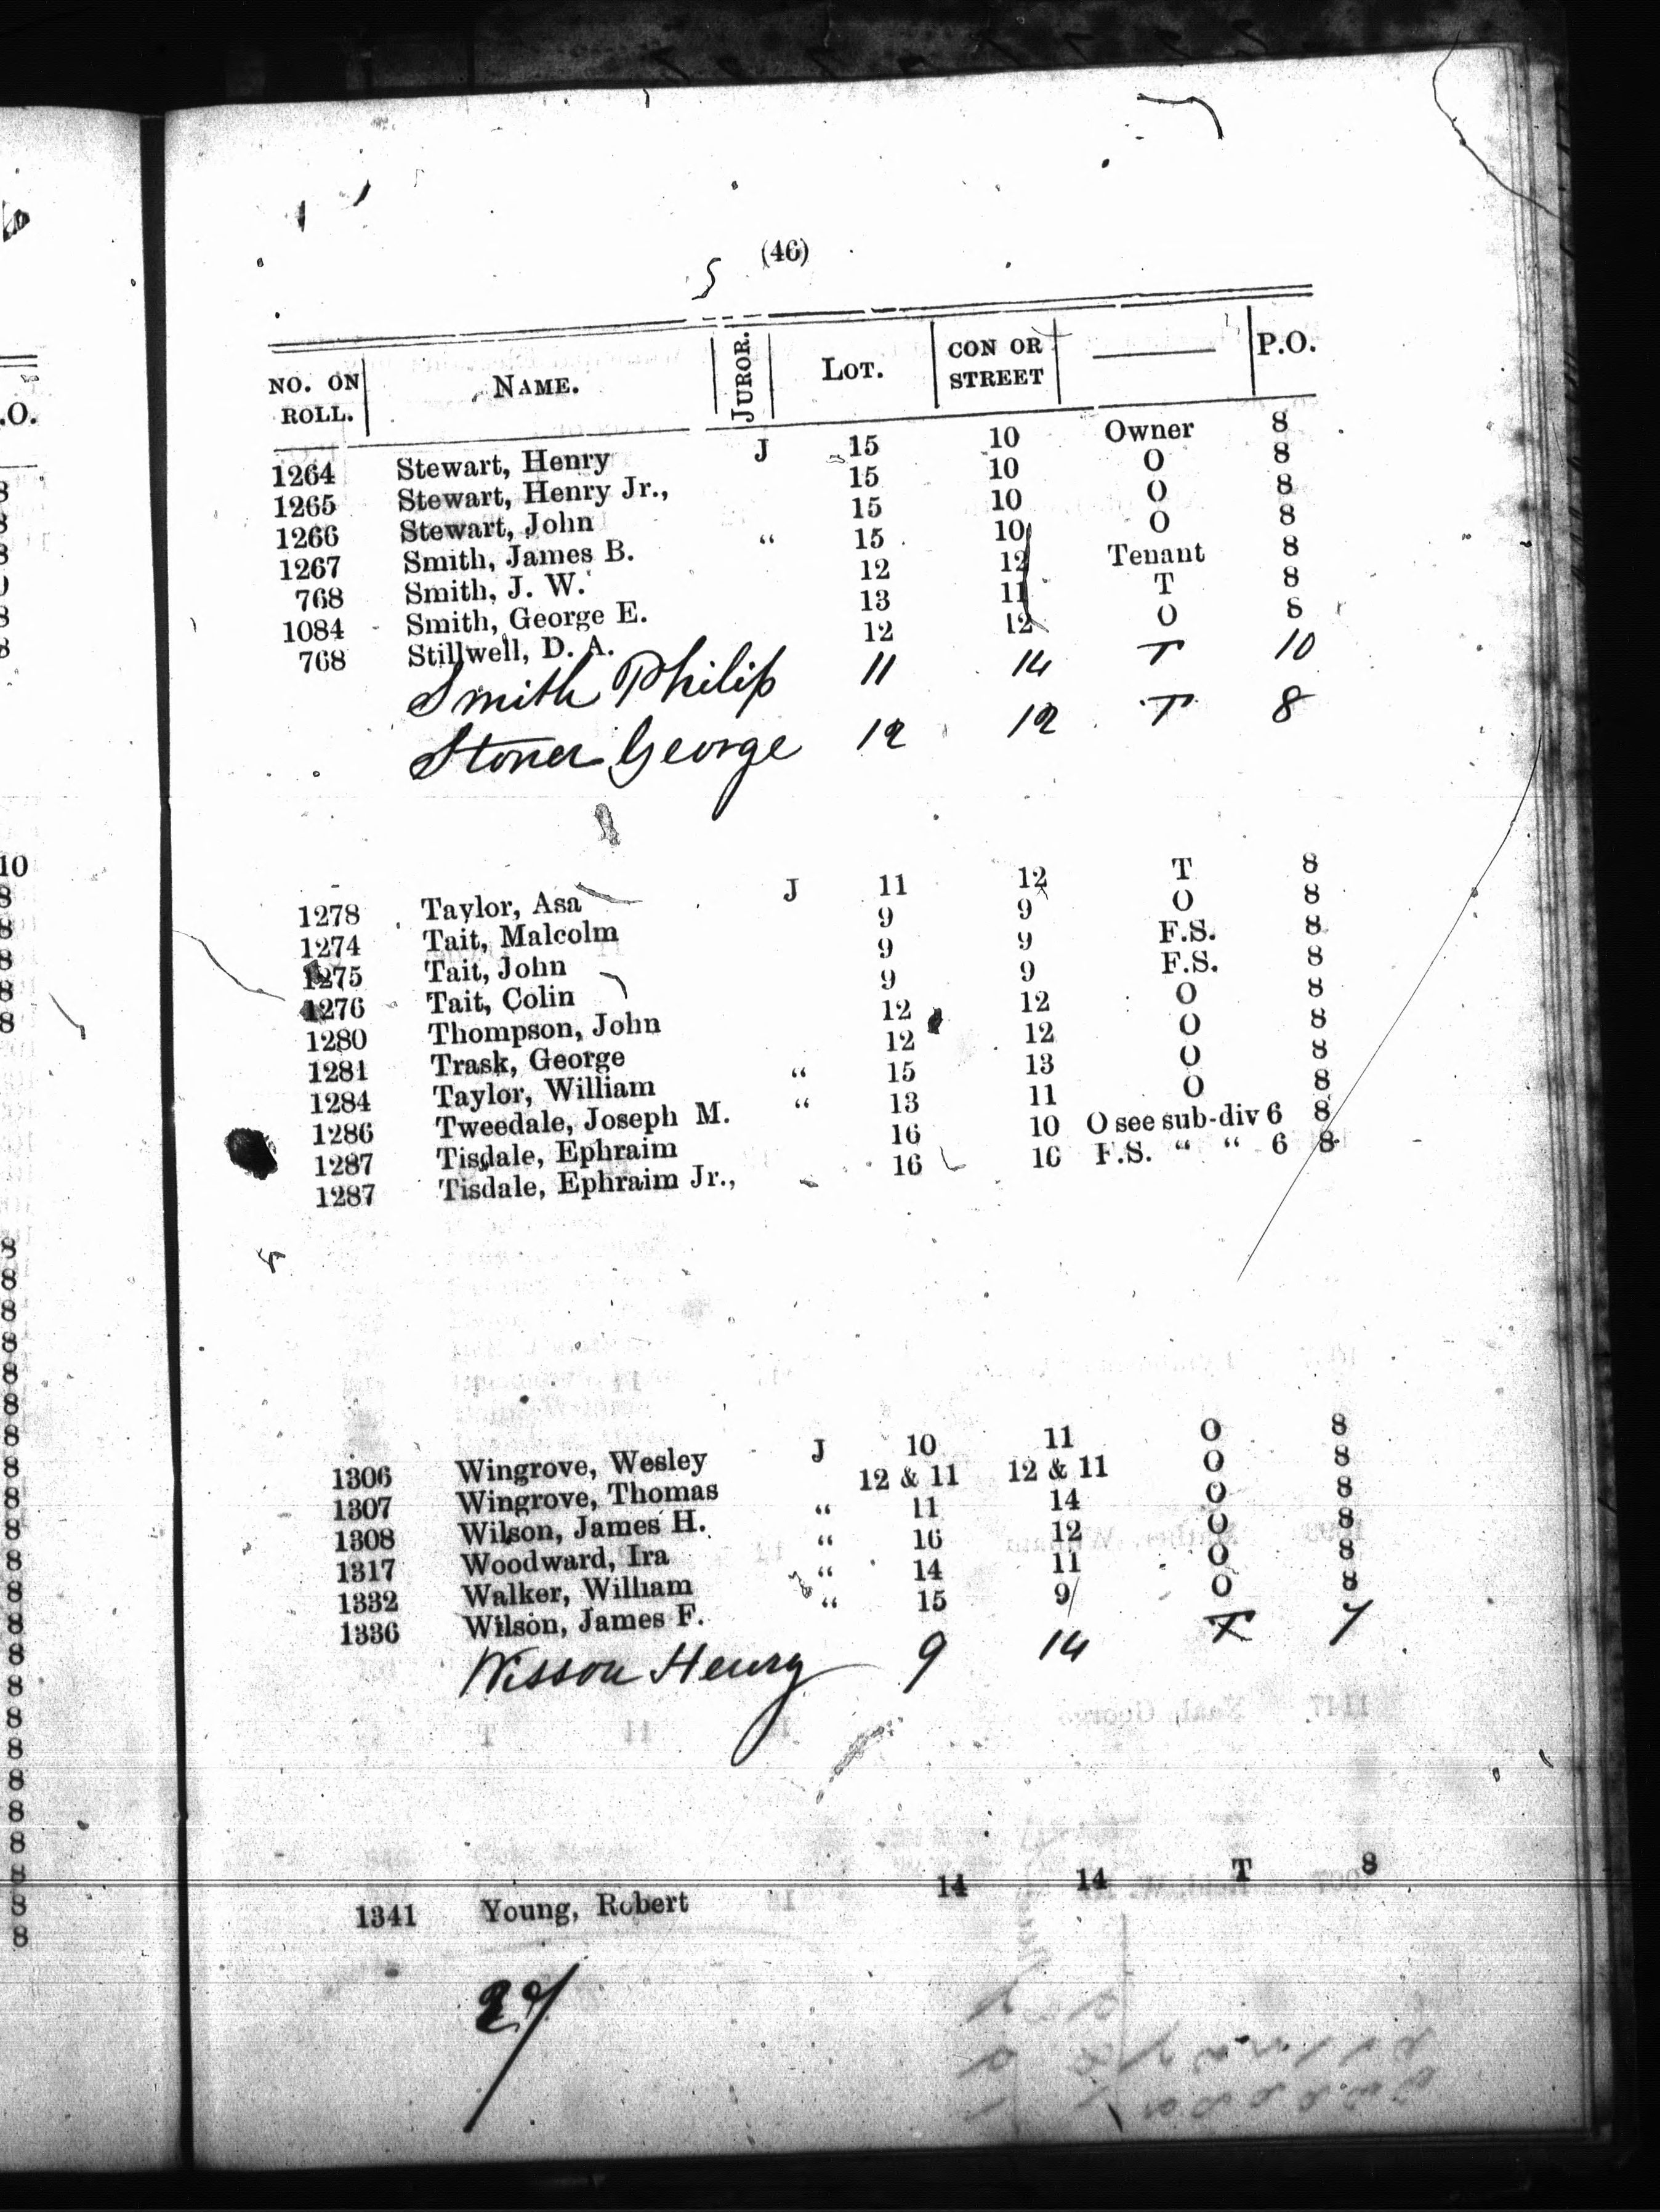 (46)
5
NO. ON ROLL. NAME. JUROR. LOT. CON OR STREET P.O.
1264 Stewart, Henry J 15 10 Owner 8
1265 Stewart, Henry Jr., 15 10 O 8
1266 Stewart, John 15 10 O 8
1267 Smith, James B. “ 15 10 O 8
768 Smith, J. W. 12 12 Tenant 8
1084 Smith, George E. 13 11 T 8
768 Stillwell, D. A. 12 12 O 8
Smith Philip 11 14 T 10
Stoner George 12 12 T 8
1278 Taylor, Asa J 11 12 T 8
1274 Tait, Malcolm 9 9 O 8
1275 Tait, John 9 9 F.S. 8
1276 Tait, Colin 9 9 F.S. 8
1280 Thompson, John 12 12 O 8
1281 Trask, George 12 12 O 8
1284 Taylor, William “ 15 13 O 8
1286 Tweedale, Joseph M. “ 13 11 O 8
1287 Tisdale, Ephraim 16 10 O see sub-div 6 8
1287 Tisdale, Ephraim Jr., 16 10 F.S. “ “ 6 8
1306 Wingrove, Wesley J 10 11 O 8
1307 Wingrove, Thomas 12 & 11 12 & 11 O 8
1308 Wilson, James H. “ 11 14 O 8
1317 Woodward, Ira “ 16 12 O 8
1332 Walker, William “ 14 11 O 8
1336 Wilson, James F. “ 15 9 O 8
Wisson Henry 9 14 T 7
1341 Young, Robert 14 14 T 8
27